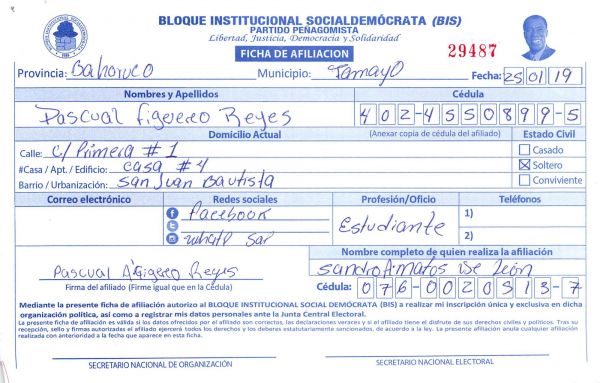 BLOQUE INSTITUCIONAL SOCIALDEMÓCRATA (BIS)
PARTIDO PEÑAGOMISTA
Libertad, Justicia, Democracia y Solidaridad
FICHA DE AFILIACION
29487
Provincia: Bahoruco Municipio: Tamayo Fecha: 25 01 19
Nombres y Apellidos Cédula
Pascual Figereo Reyes 402-4550899-5
Domicilio Actual (Anexar copia de cédula del afiliado) Estado Civil
Calle: C/ Primera # 1 Casado
#Casa / Apt. / Edificio: Casa # 4 Soltero
Barrio / Urbanización: San Juan Bautista Conviviente
Correo electrónico Redes sociales Profesión/Oficio Teléfonos
Facebook Estudiante 1)
What P Sap 2)
Nombre completo de quien realiza la afiliación
Pascual Reyes De León
Firma del afiliado (Firme igual que en la Cédula) Cédula: 076-0020513-7
Mediante la presente ficha de afiliación autorizo al BLOQUE INSTITUCIONAL SOCIAL DEMÓCRATA (BIS) a realizar mi inscripción única y exclusiva en dicha
organización política, así como a registrar mis datos personales ante la Junta Central Electoral.
La presente ficha de afiliación es válida si los datos ofrecidos por el afiliado son correctos, las declaraciones veraces y si el afiliado tiene el disfrute de sus derechos civiles y políticos. Tras su
recepción, sello y firmas autorizadas el afiliado ejercerá todos los derechos y los deberes estatutariamente sancionados, de acuerdo a la ley. La presente afiliación anula cualquier afiliación
realizada con anterioridad a la fecha que aparece en esta ficha.
SECRETARIO NACIONAL DE ORGANIZACIÓN SECRETARIO NACIONAL ELECTORAL